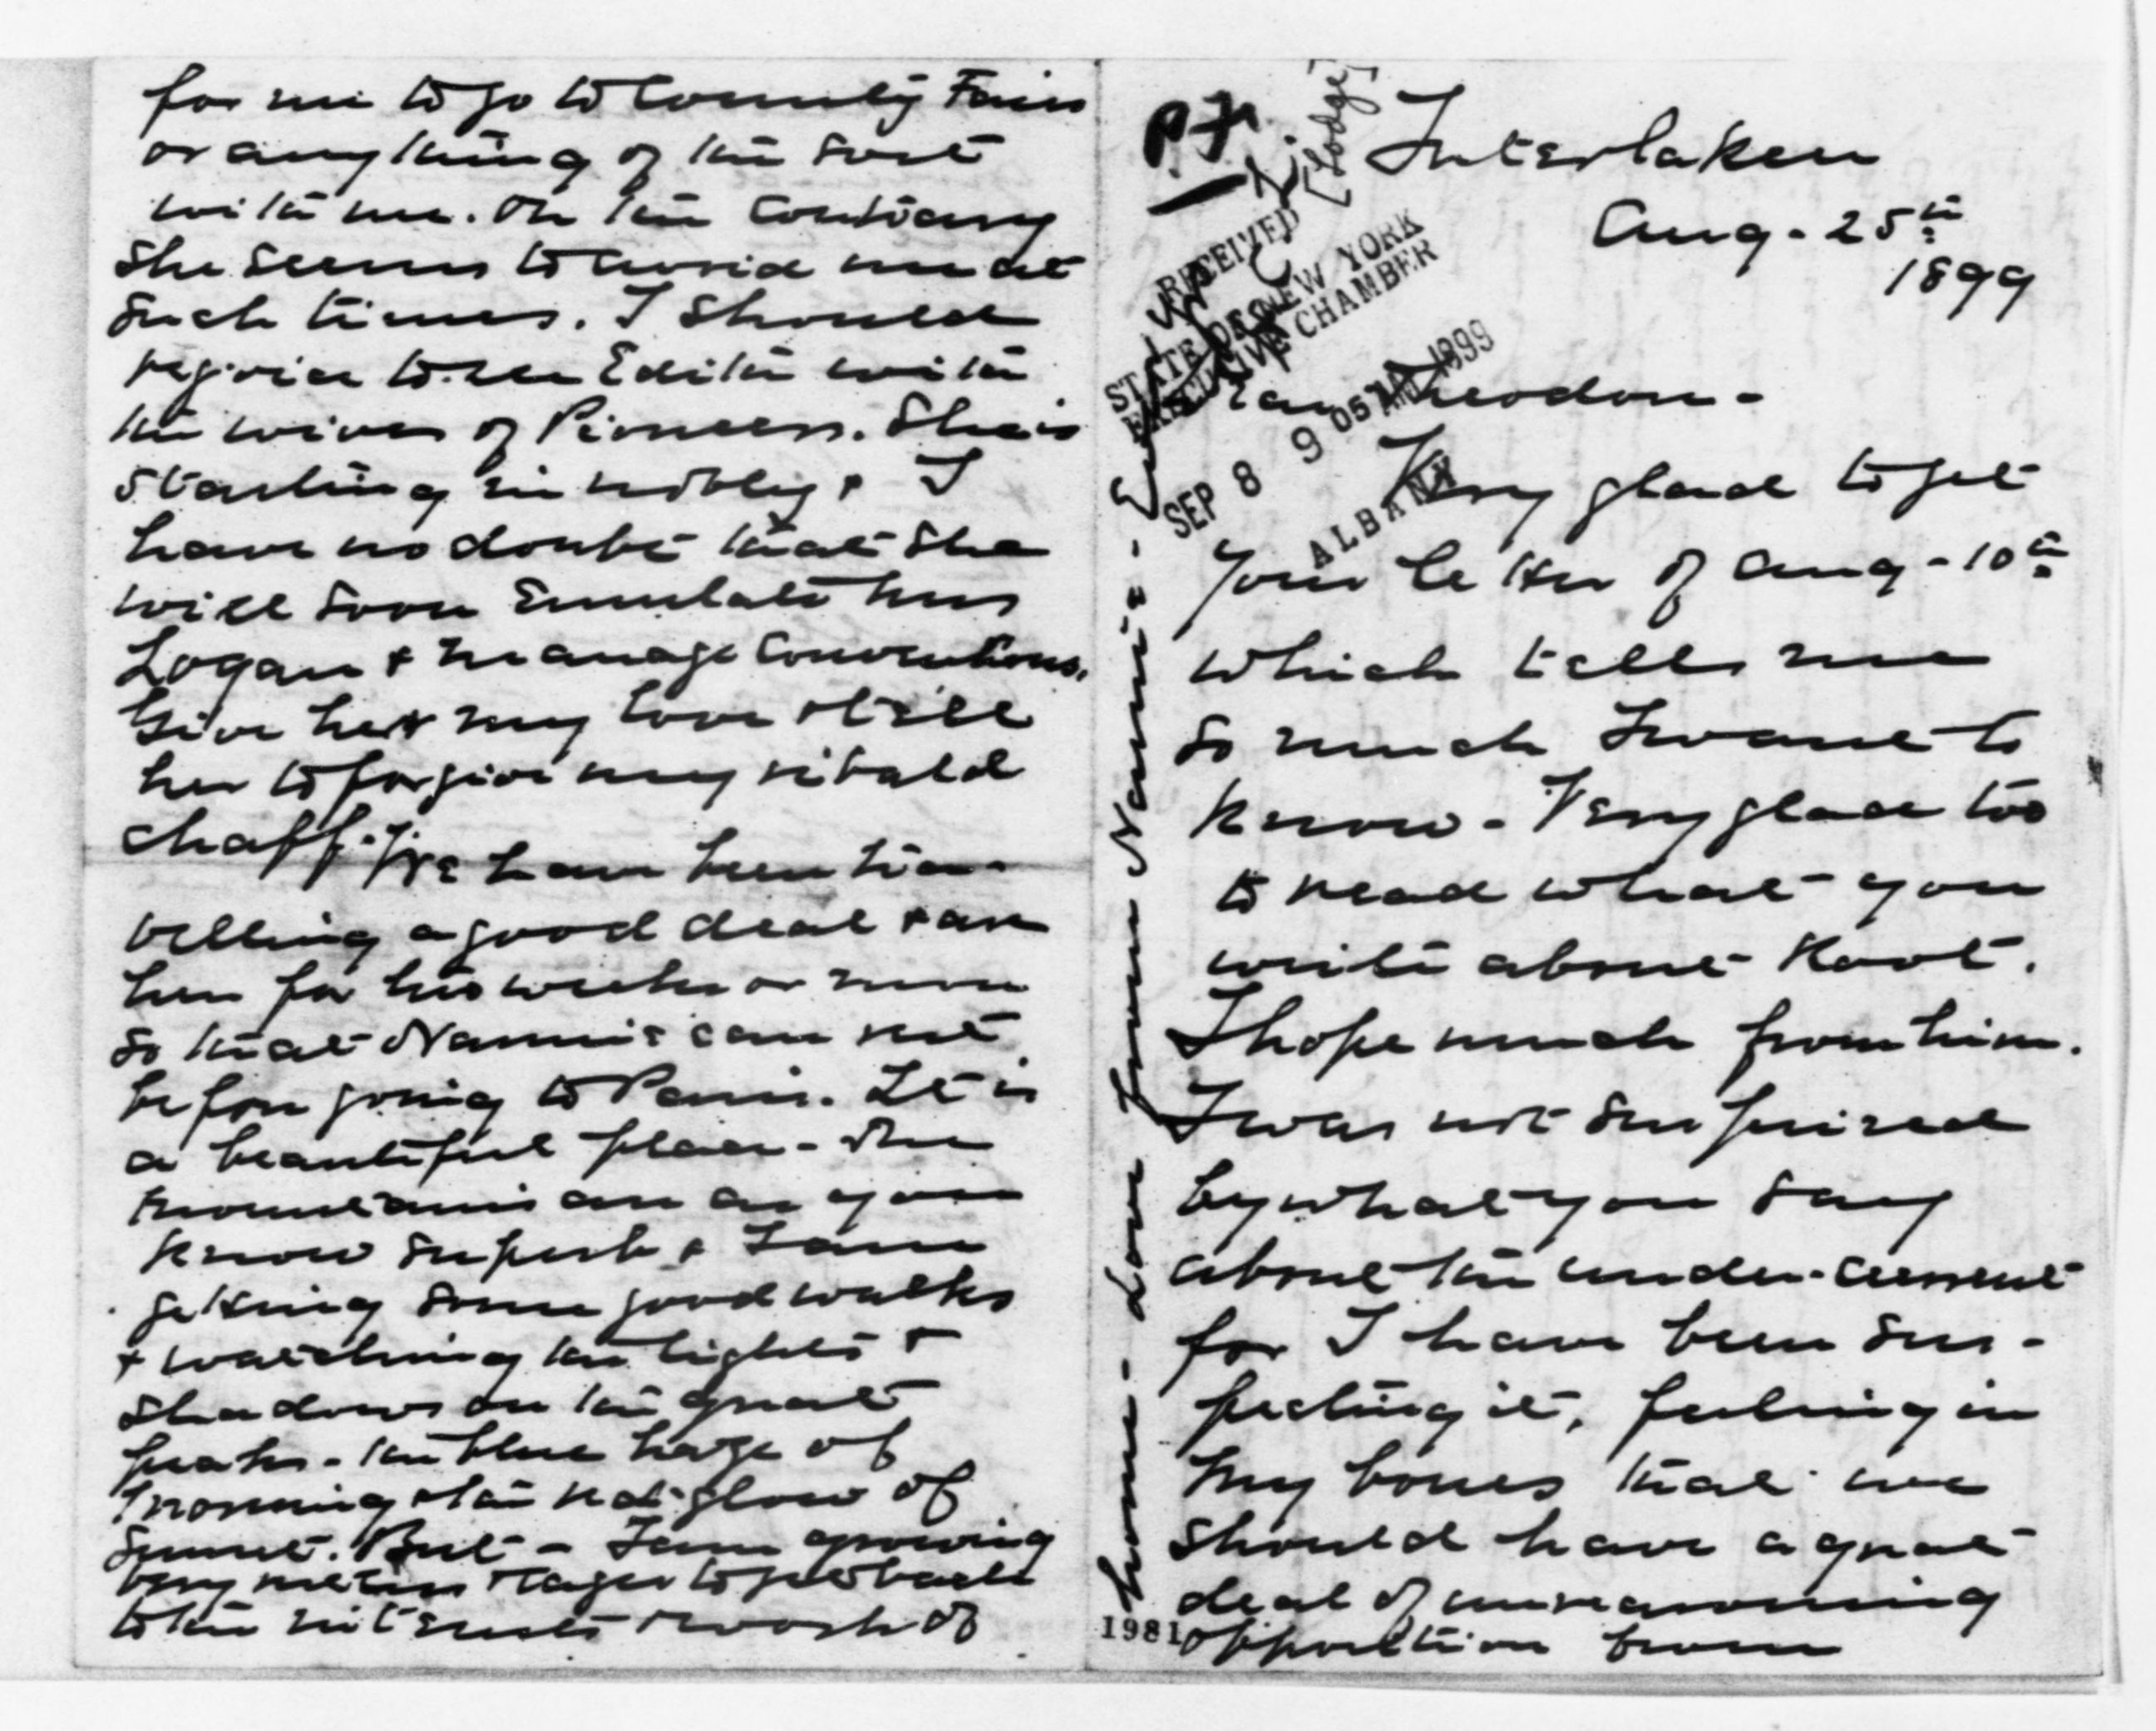 for me to go to County Fairs
or anything of the sort
with me. On the contrary
she seems to avoid me at
such times. I should
rejoice to see Edith with
the wives of Pioneers. She is
starting in nobly & I
have no doubt that she
will soon emulate Mrs
Logan & manage Conventions.
Give her my love & tell
her to forgive my ribald
chaff. We have been tra-
velling a good deal & are
here for two weeks or more
so that Nannie can rest
before going to Paris. It is
a beautiful place - The
mountains are as you
know superb & I am
getting some good walks
& watching the lights &
shadows on the great
peaks - the blue haze of
morning & the red glow of
sunset. But - I am growing
very restless & eager to get back
to the interests & work of
P.F.
[Lodge]
Interlaken
Aug - 25th
1899
RECEIVED
STATE OF NEW YORK
EXECUTIVE CHAMBER
SEP 8 9 05 AM 1899
ALBANY
Dear Theodore -
Very glad to get
your letter of Aug - 10th
which tells me
so much I want to
know - Very glad too
to read what you
write about Root.
I hope much from him.
I was not surprised
by what you say
about the under-current
for I have been sus-
pecting it, feeling in
my bones that we
should have a great
deal of unreasoning
opposition from
home - love from Nannie -
1981